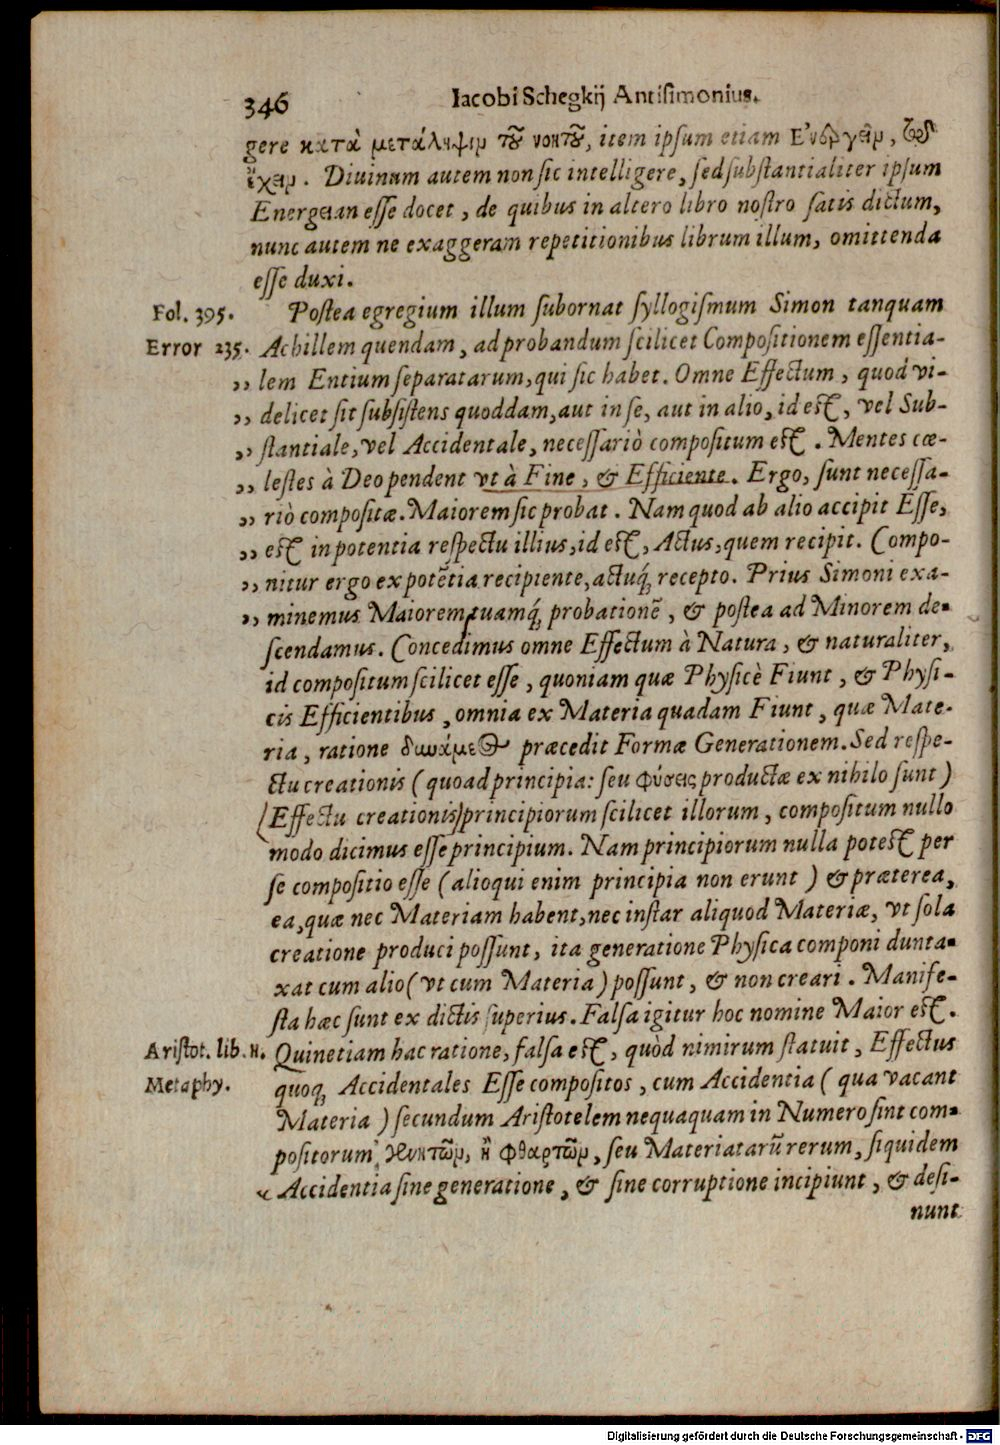 346 Iacobi Schegkij Antisimonius.
gere κατὰ μετάληψιν τοῦ νοητοῦ, item ipsum etiam Ενεργεῖν, τῷ
ἔχειν. Diuinum autem non sic intelligere, sed substantialiter ipsum
Energeian esse docet, de quibus in altero libro nostro satis dictum,
nunc autem ne exaggeram repetitionibus librum illum, omittenda
esse duxi.
Fol. 395. Postea egregium illum subornat syllogismum Simon tanquam
Error 235. Achillem quendam, ad probandum scilicet Compositionem essentia-
,, lem Entium separatarum, qui sic habet. Omne Effectum, quod vi-
,, delicet sit subsistens quoddam, aut in se, aut in alio, id est, vel Sub-
,, stantiale, vel Accidentale, necessariò compositum est. Mentes cæ-
,, lestes à Deo pendent vt à Fine, & Efficiente. Ergo, sunt necessa-
,, riò compositæ. Maiorem sic probat. Nam quod ab alio accipit Esse,
,, est in potentia respectu illius, id est, Actus, quem recipit. Compo-
,, nitur ergo ex potẽtia recipiente, actuq́; recepto. Prius Simoni exa-
,, minemus Maiorem, tuamq́; probationẽ, & postea ad Minorem de-
scendamus. Concedimus omne Effectum à Natura, & naturaliter,
id compositum scilicet esse, quoniam quæ Physicè Fiunt, & Physi-
cis Efficientibus, omnia ex Materia quadam Fiunt, quæ Mate-
ria, ratione δυνάμεως præcedit Formæ Generationem. Sed respe-
ctu creationis (quoad principia: seu φύσεις productæ ex nihilo sunt)
(Effectu creationis) principiorum scilicet illorum, compositum nullo
modo dicimus esse principium. Nam principiorum nulla potest per
se compositio esse (alioqui enim principia non erunt) & præterea,
ea, quæ nec Materiam habent, nec instar aliquod Materiæ, vt sola
creatione produci possunt, ita generatione Physica componi dunta-
xat cum alio (vt cum Materia) possunt, & non creari. Manife-
sta hæc sunt ex dictis superius. Falsa igitur hoc nomine Maior est.
Aristot. lib. H. Quinetiam hac ratione, falsa est, quòd nimirum statuit, Effectus
Metaphy. quoq; Accidentales Esse compositos, cum Accidentia (qua vacant
Materia) secundum Aristotelem nequaquam in Numero sint com-
positorum, γενητῶν, ἢ φθαρτῶν, seu Materiatarũ rerum, siquidem
Accidentia sine generatione, & sine corruptione incipiunt, & desi-
nunt
Digitalisierung gefördert durch die Deutsche Forschungsgemeinschaft - DFG